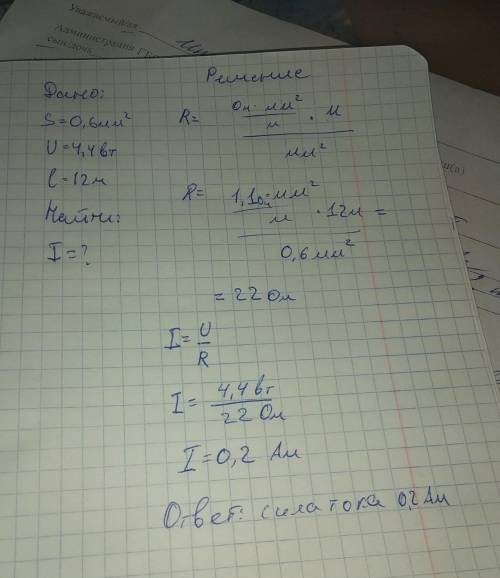 Уважаемый
Администрация
сын/дочь
Решение
Дано:
S=0,6мм²
U=4,4вт
l=12м
Найти:
I=?
R= Ом·мм²/м · м / мм²
R= 1,1ом·мм²/м · 12м / 0,6мм² =
= 22 Ом
I= U/R
I= 4,4вт/22 Ом
I=0,2 Ам
Ответ: сила тока 0,2 Ам